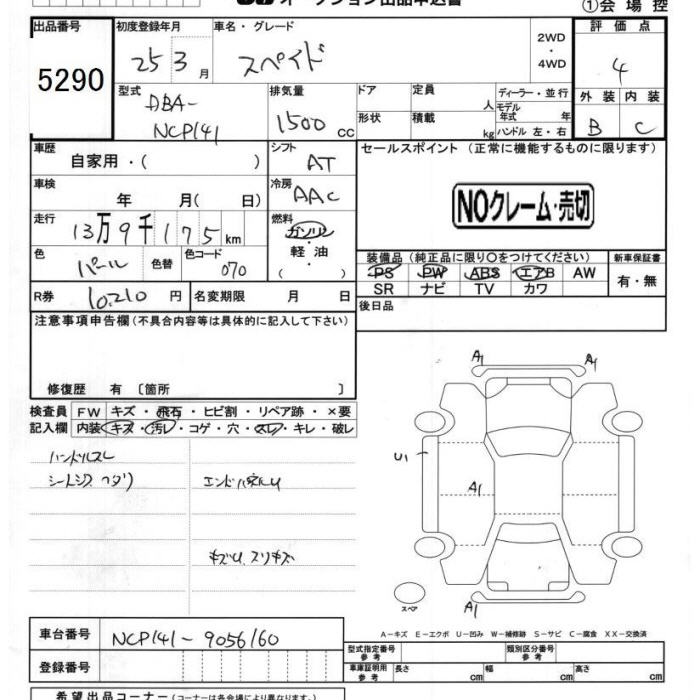 オークション出品申込書
①会場控
出品番号 初度登録年月 車名・グレード 2WD・4WD 評価点
5290 25 3月 スペイド 4
型式 排気量 ドア 定員 人 ディーラー・並行 外装 内装
DBA-NCP141 1500cc 形状 積載 kg モデル年式 年 ハンドル 左・右 B C
車歴 自家用・( ) シフト AT セールスポイント(正常に機能するものに限ります)
車検 年 月( 日) 冷房 AAC
NOクレーム・売切
走行 13万9千175km 燃料 ガソリン・軽油・( )
装備品(純正品に限り○をつけてください) 新車保証書
色 パール 色替 色コード 070 PS PW ABS エアB AW 有・無
SR ナビ TV カワ
R券 10,210円 名変期限 月 日 後日品
注意事項申告欄(不具合内容等は具体的に記入して下さい)
修復歴 有〔箇所 〕
検査員 FW キズ・飛石・ヒビ割・リペア跡・×要
記入欄 内装 キズ・汚レ・コゲ・穴・スレ・キレ・破レ
ハンドルスレ
シートシワ ヘタリ エンドパネルU
キズU、スリキズ
A1 A1
U1
A1
スペア A1
A-キズ E-エクボ U-凹み W-補修跡 S-サビ C-腐食 XX-交換済
車台番号 NCP141-9056160
型式指定番号 参考 類別区分番号 参考
登録番号
車庫証明用 参考 長さ cm 幅 cm 高さ cm
希望出品コーナー(コーナーは各会場により異なります)